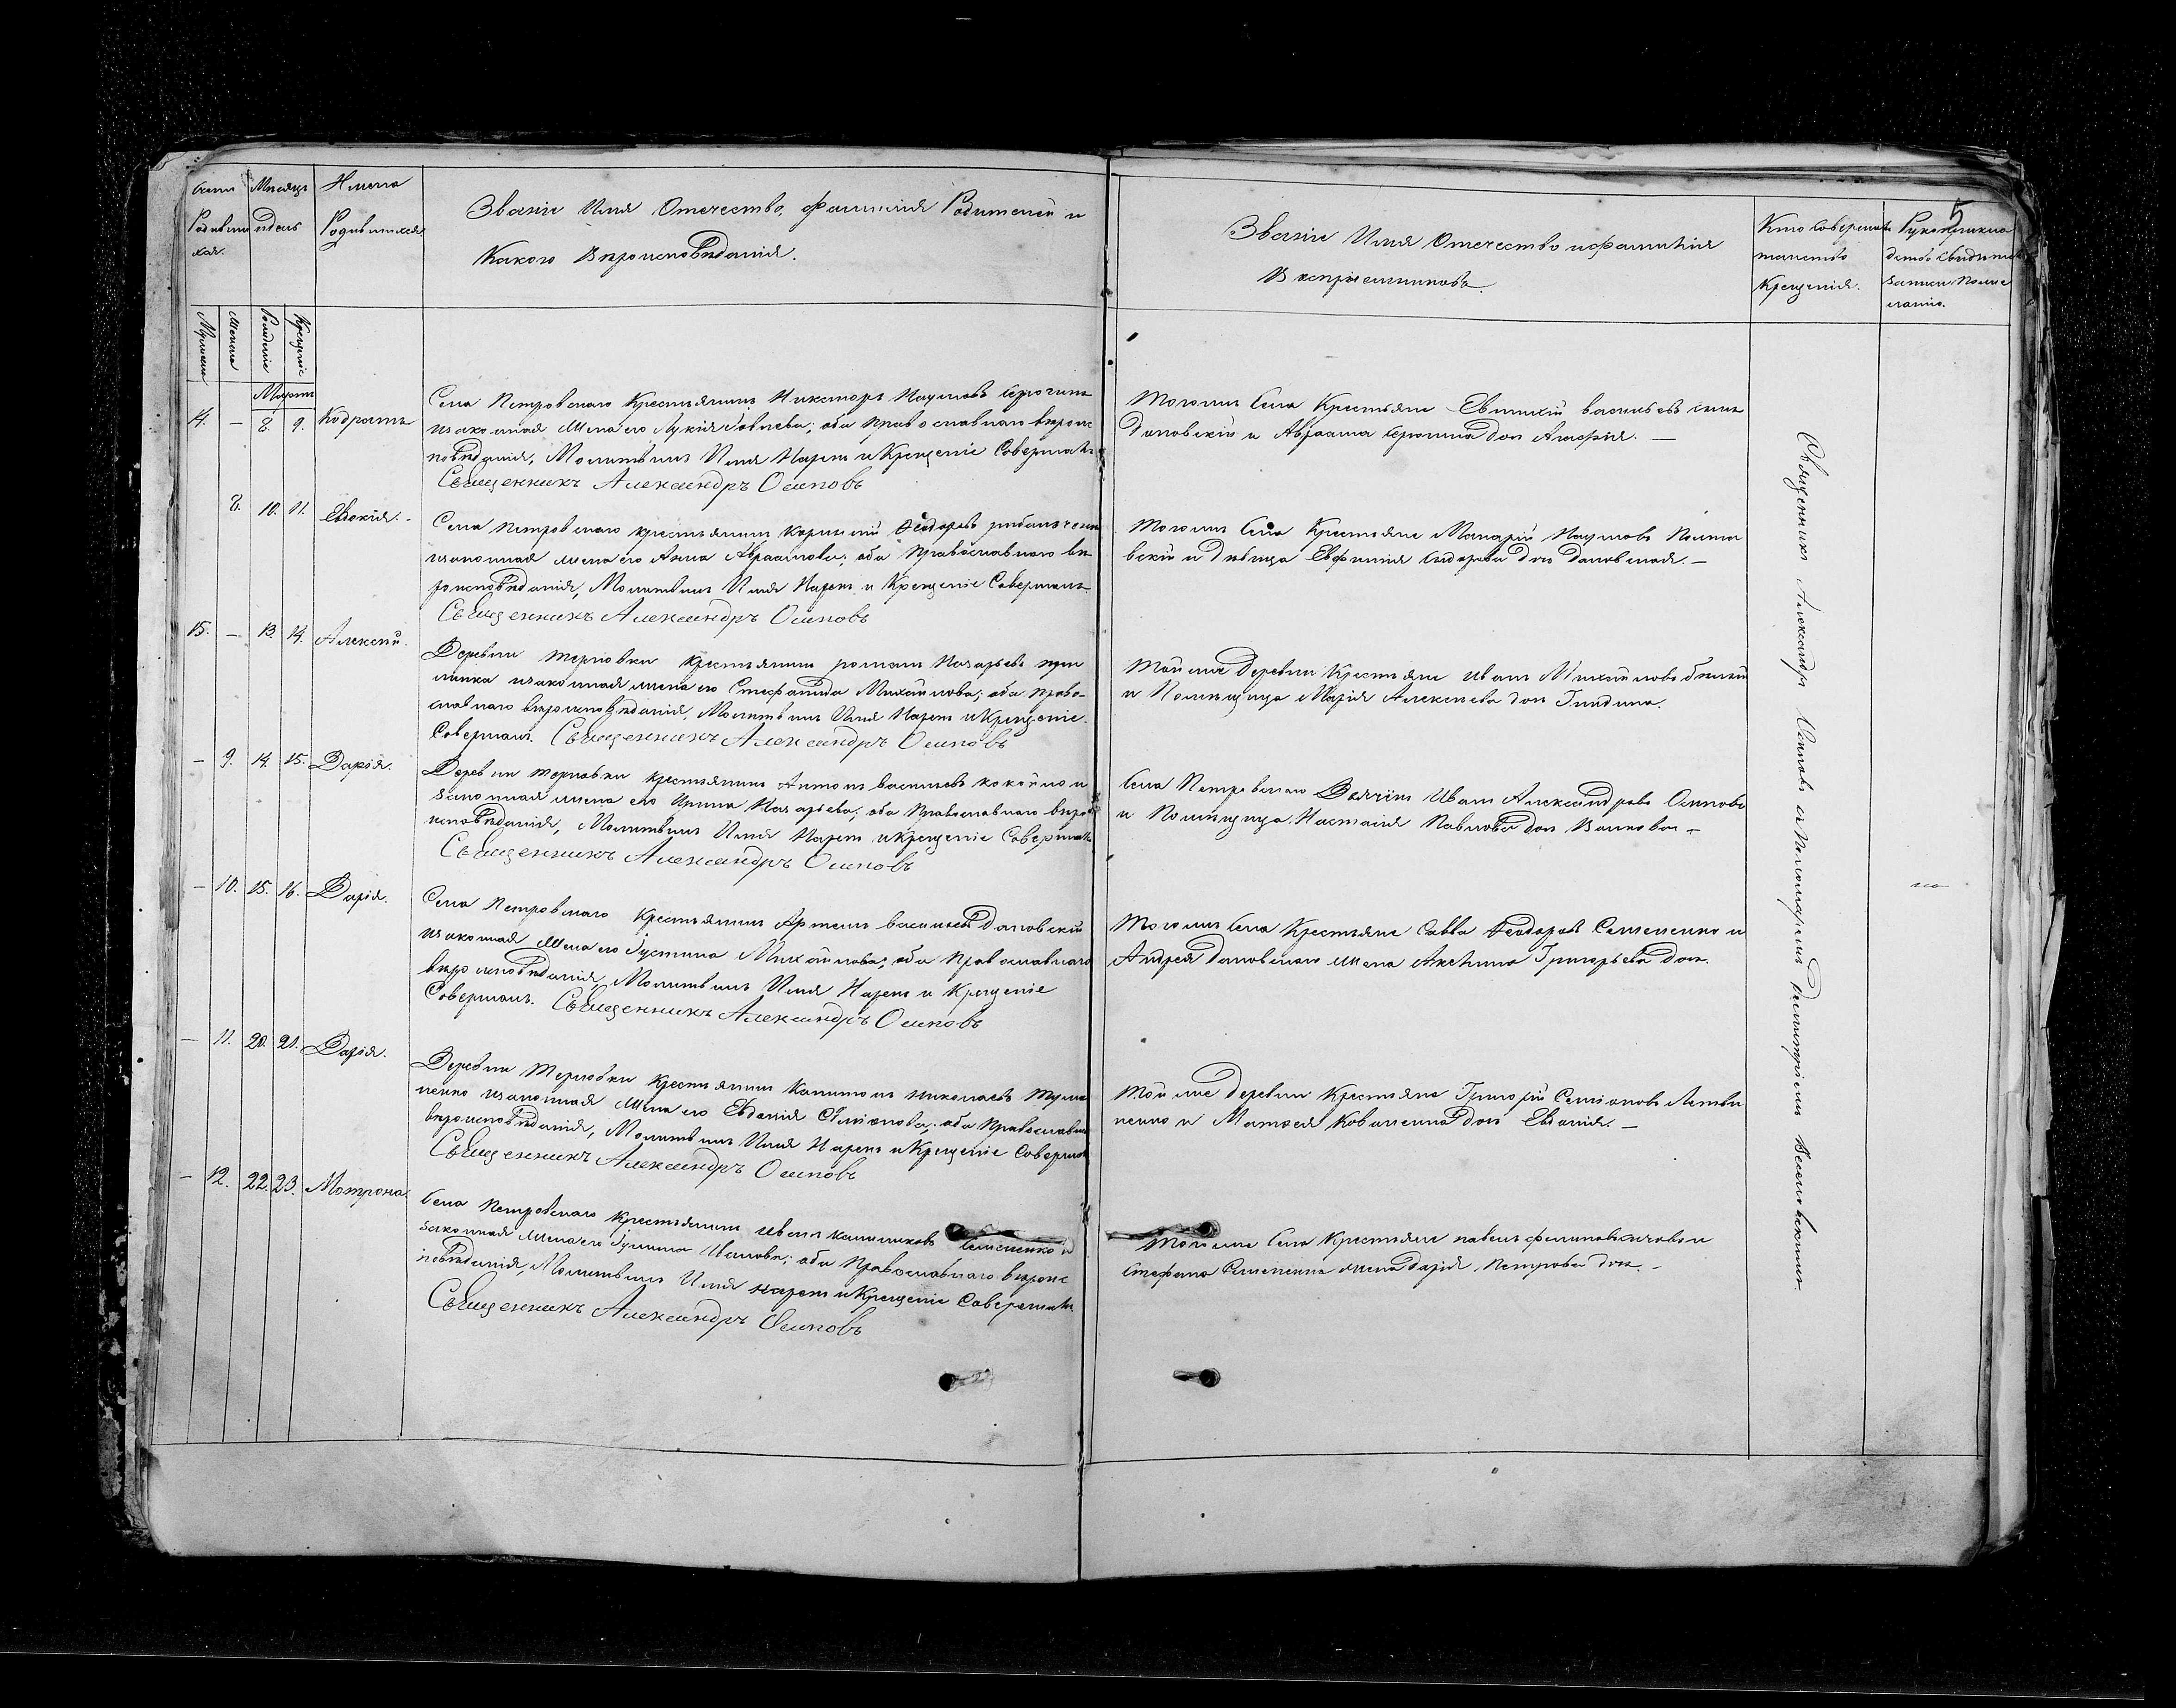 5
Счетъ
Родивши
хся.
Мѣсяцъ
и день
Имена
Родившихся
Званіе Имя Отечество, фамилія Родителей и
Какого Вѣроисповѣданія.
Званіе Имя Отечество и фамилія
Воспріемниковъ.
Кто Совершалъ
таинство
Крещенія.
Рукоприкла
дство свидѣтел
записи по же
ланію.
Мужеска
Женска
Рожденіе
Крещеніе
Мартъ
14. — 8. 9. Кодратъ
Села Петровскаго Крестьянинъ Никторъ Наумовъ
изаконная Жена его Лукія; оба православнаго вѣроис
повѣданія, Молитвилъ Имя Нарек и Крещеніе Совершалъ
Священникъ Александръ Осиповъ
Тогожъ Села Крестьяне Евтихій васильевъ сынъ
Дановскій и Авраама дочь Агафія. —
8. 10. 11. Евдокія.
Села Петровскаго крестьянинъ Корнилій Феодоровъ
изаконная жена его Анна Авраамова; оба Православнаго вѣ
роисповѣданія, Молитвилъ Имя Нарек и Крещеніе Совершалъ
Священникъ Александръ Осиповъ
Тогожъ Села Крестьяне Макарій Наумовъ
вскій и дѣвица Евфимія дочь Дановская. —
15. — 13. 14. Алексѣй.
Деревни Терновки крестьянинъ романъ Назарьевъ
изаконная жена его Стефанида Михайлова; оба право-
славнаго вѣроисповѣданія, Молитвилъ Имя Нарек и Крещеніе
Совершалъ. Священникъ Александръ Осиповъ
Тойже деревни Крестьяне иванъ Михайловъ
и Помѣщица Марія Алексѣева дочь
— 9. 14. 15. Дарія.
Деревни Терновки крестьянинъ Антонъ васильевъ и
законная жена его Ирина Назарьева; оба Православнаго вѣро
исповѣданія, Молитвилъ Имя Нарек и Крещеніе Совершалъ
Священникъ Александръ Осиповъ
Села Петровскаго Иванъ Александровъ Осиповъ
и Помѣщица Настасія Павлова дочь —
— 10. 15. 16. Дарія.
Села Петровскаго Крестьянинъ Артемъ васильевъ Дановскій
изаконная Жена его Іустина Михайлова; оба Православнаго
вѣроисповѣданія, Молитвилъ Имя Нарек и Крещеніе
Совершалъ. Священникъ Александръ Осиповъ
Тогожъ Села Крестьяне Савва Феодоровъ Семененко и
Андрея Дановскаго жена Акелина Григорьева дочь.
— 11. 20. 21. Дарія.
Деревни Терновки Крестьянинъ Капитонъ Николаевъ
ненко изаконная Жена его Евдокія Семіонова; оба Православнаго
вѣроисповѣданія, Молитвилъ Имя Нарек и Крещеніе Совершалъ
Священникъ Александръ Осиповъ
Тойже деревни Крестьяне Григорій Семіоновъ Литви
ненко и Матвея Коваленка дочь Евдокія. —
— 12. 22. 23. Мотрона.
Села Петровскаго Крестьянинъ иванъ Семененко и
законная Жена его Іулита Иванова; оба Православнаго вѣроис
повѣданія, Молитвилъ Имя нарек и Крещеніе Совершалъ
Священникъ Александръ Осиповъ
Тогоже Села Крестьяне павелъ филиповъ и
Стефана Семененка жена дарія Петрова дочь. —
Священникъ Александръ Осиповъ съ Пономаремъ Димитріемъ